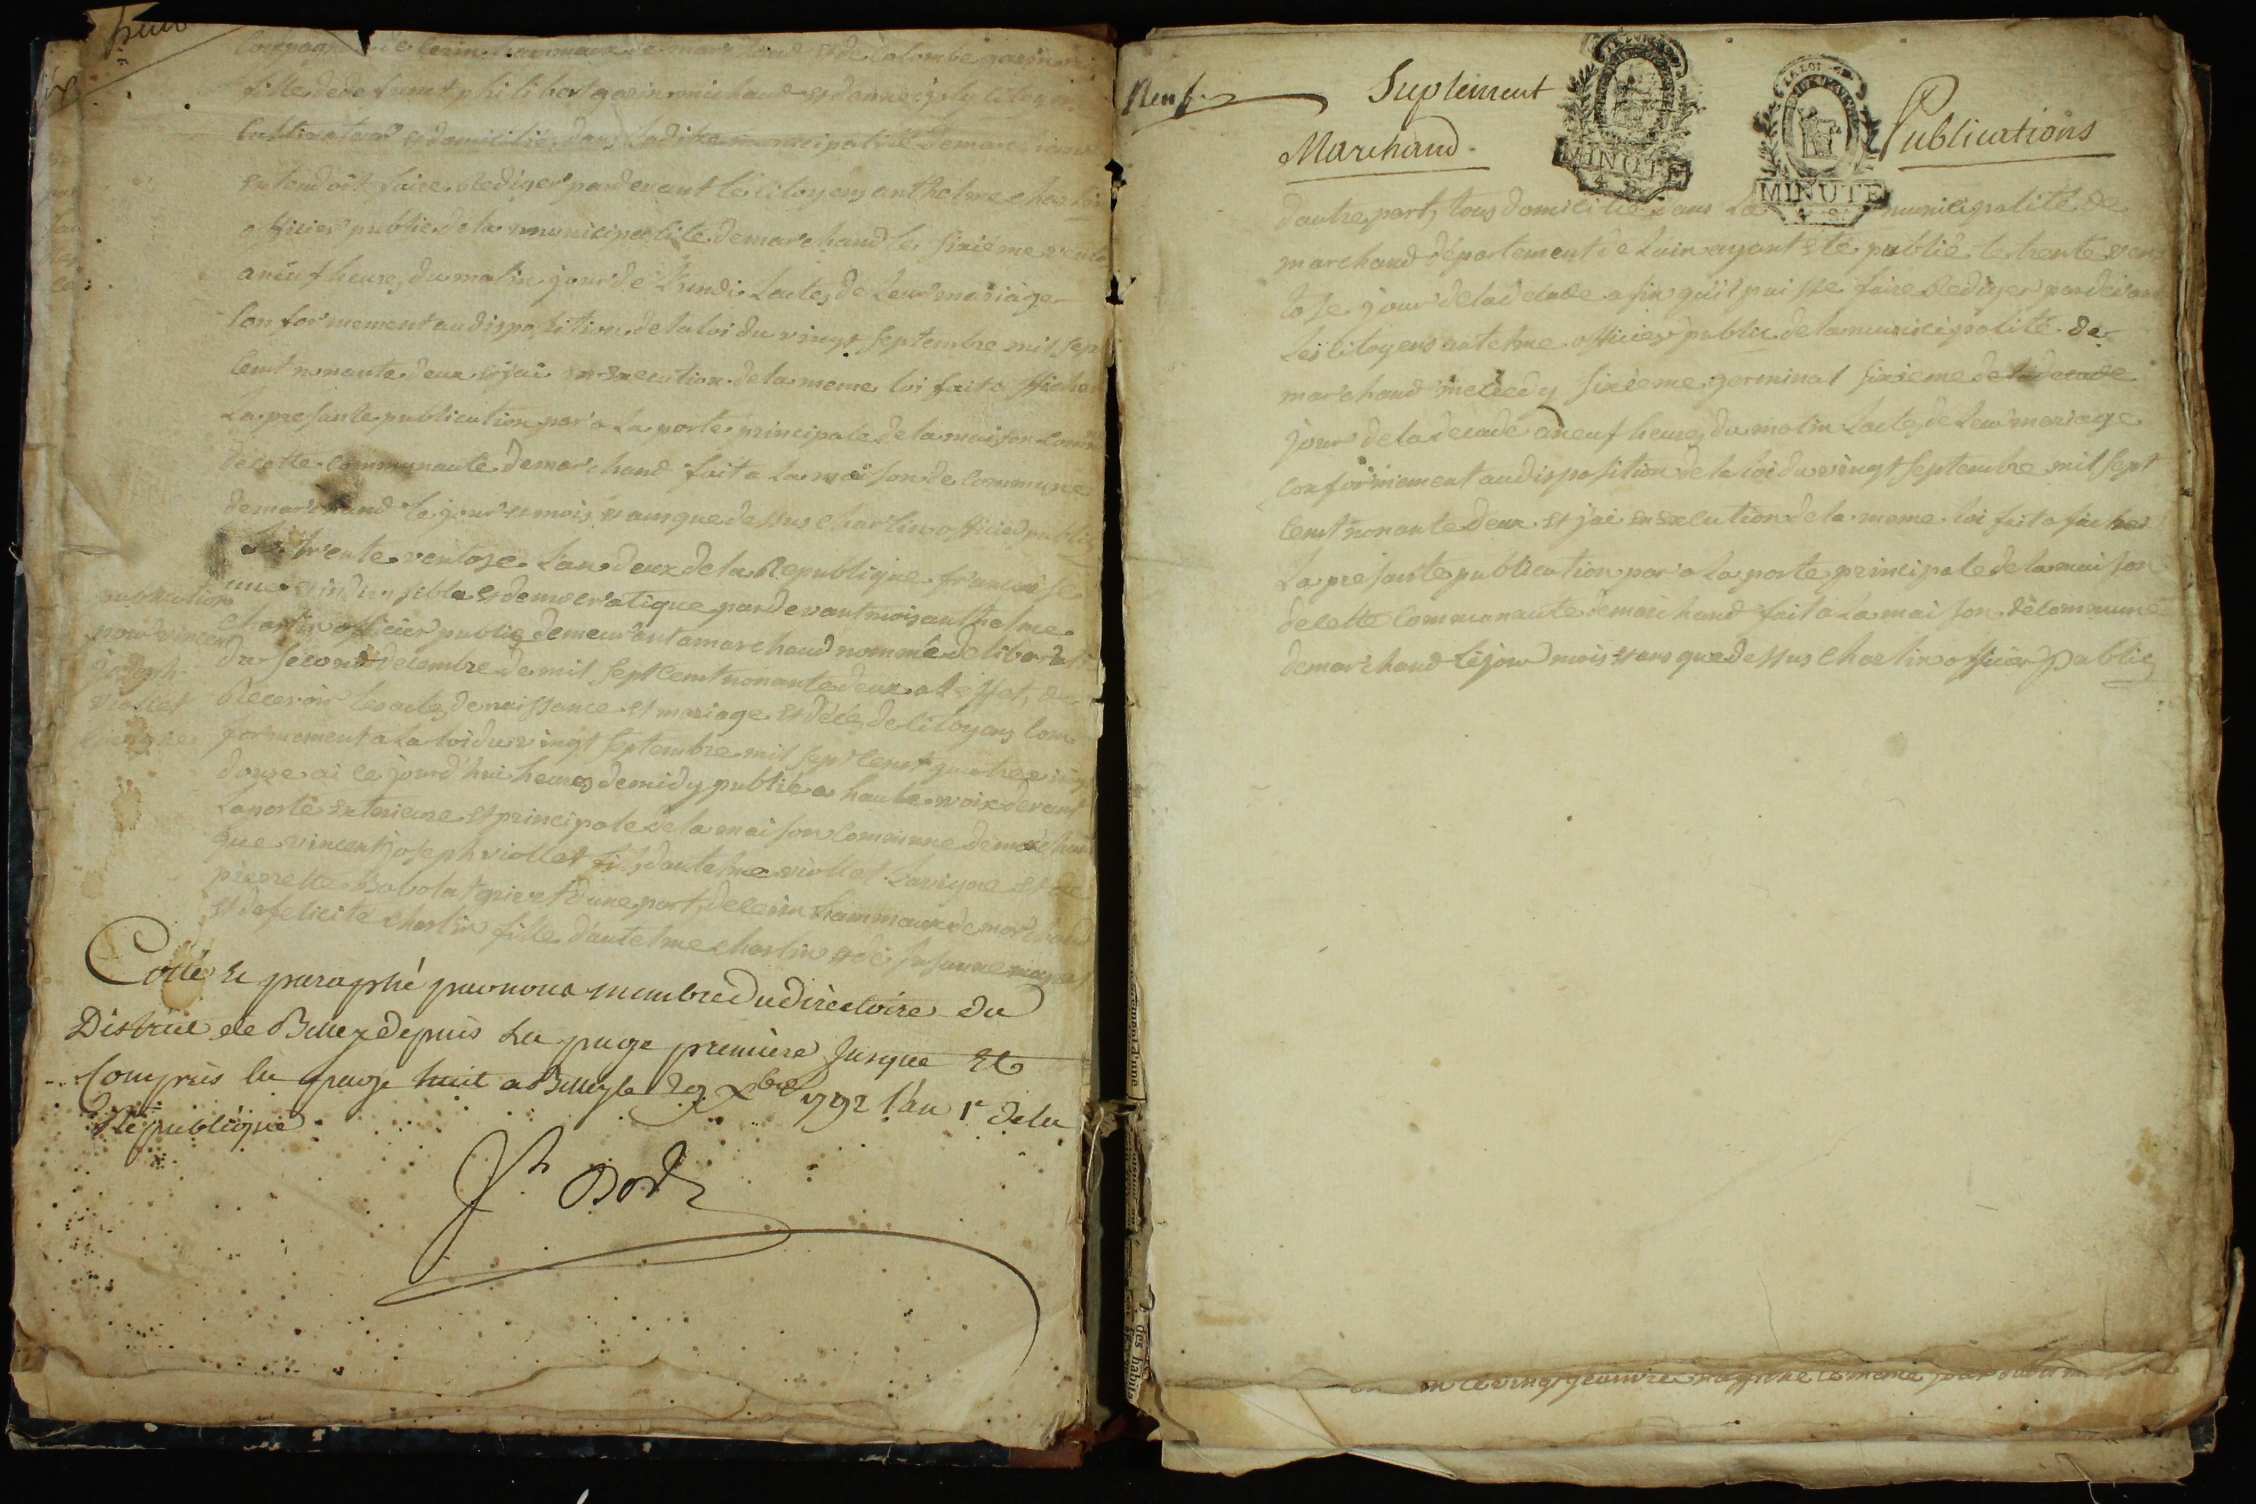 huit
de cerin hammeaux de marchand et de Colombe
fille de defunt philibert gorin michaud et danne
Cultivateur et domicilié dans ladite municipalité de marchand
entendoit faire rediger pardevant le citoyens anthelme charlin
officier public de la municipalite de marchand le sixiéme
a neuf heures du matin jour de Lundi Lacte de Leur mariage
Conformement au disposition de la loi du vingt septembre mil sept
Cent nonante deux et jai en execution de la meme loi fait afficher
La presante publication par a La porte principale de la maison Commune
de cette communaute de marchand fait a La maison de commune
de marchand le jour et mois et an que dessus charlin officier public
le trente ventose Lan deux de la Republique francaise
une et indivisible et democratique pardevant moi anthelme
charlin officier public demeurant a marchand nommé
du second decembre de mil sept cent nonante deux a l effet de
Recevoir les actes de naissance et mariage et décés de citoyens con
formement a La loi du vingt septembre mil sept cent quatre vingt
douze ai ce jourd'hui heures de midy publié a haute voix devant
La porte exterieure et principale de la maison Commune de marchand
que vincent joseph viollet fils dantelme viollet Lavigne et de
pierrette d'une part de cerin hammeaux de marchand
et de felicite charlin fille d'antelme charlin et de susanne
publication
pour vincent
joseph
viollet
Cotté et paraphé par nous membre du directoire du
District de Belley depuis La page premiere Jusque et
Compris la page huit a Belley le 29 Xbre 1792 l'an 1r de la
Republique
Neuf
Suplément
Marchand
Publications
LA LOI
MINUTE
MINUTE
d'autre part, tous domicilié dans La municipalité de
marchand département de Lain ayant eté publié le trente ven
tose jour de la decade afin qu'il puisse faire Rediger pardevant
Les citoyens antelme officier public de la municipalité de
marchand mecredy sixieme germinal sixieme de la decade
jour de la decade a neuf heures du matin Lacte de Leur mariage
conformement au disposition de la loi du vingt septembre mil sept
cent nonante deux et jai en execution de la meme loi fait aficher
La presante publication par a La porte principale de la maison
de cette communaute de marchand fait a La maison de commune
de marchand Le jour mois et ans que dessus charlin officier public